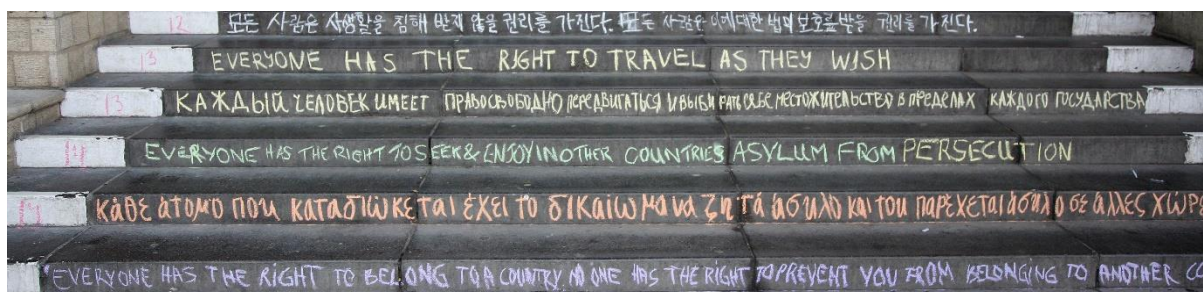 12 모든 사람은 사생활을 침해 받지 않을 권리를 가진다. 모든 사람은 이에대한 법의 보호를받을 권리를 가진다.
13 EVERYONE HAS THE RIGHT TO TRAVEL AS THEY WISH
13 КАЖДЫЙ ЧЕЛОВЕК ИМЕЕТ ПРАВО СВОБОДНО ПЕРЕДВИГАТЬСЯ И ВЫБИРАТЬ СЕБЕ МЕСТОЖИТЕЛЬСТВО В ПРЕДЕЛАХ КАЖДОГО ГОСУДАРСТВА
EVERYONE HAS THE RIGHT TO SEEK & ENJOY IN OTHER COUNTRIES ASYLUM FROM PERSECUTION
κάθε άτομο που καταδιώκεται έχει το δικαίωμα να ζητά άσυλο και του παρέχεται άσυλο σε άλλες χώρε
EVERYONE HAS THE RIGHT TO BELONG TO A COUNTRY NO ONE HAS THE RIGHT TO PREVENT YOU FROM BELONGING TO ANOTHER CO